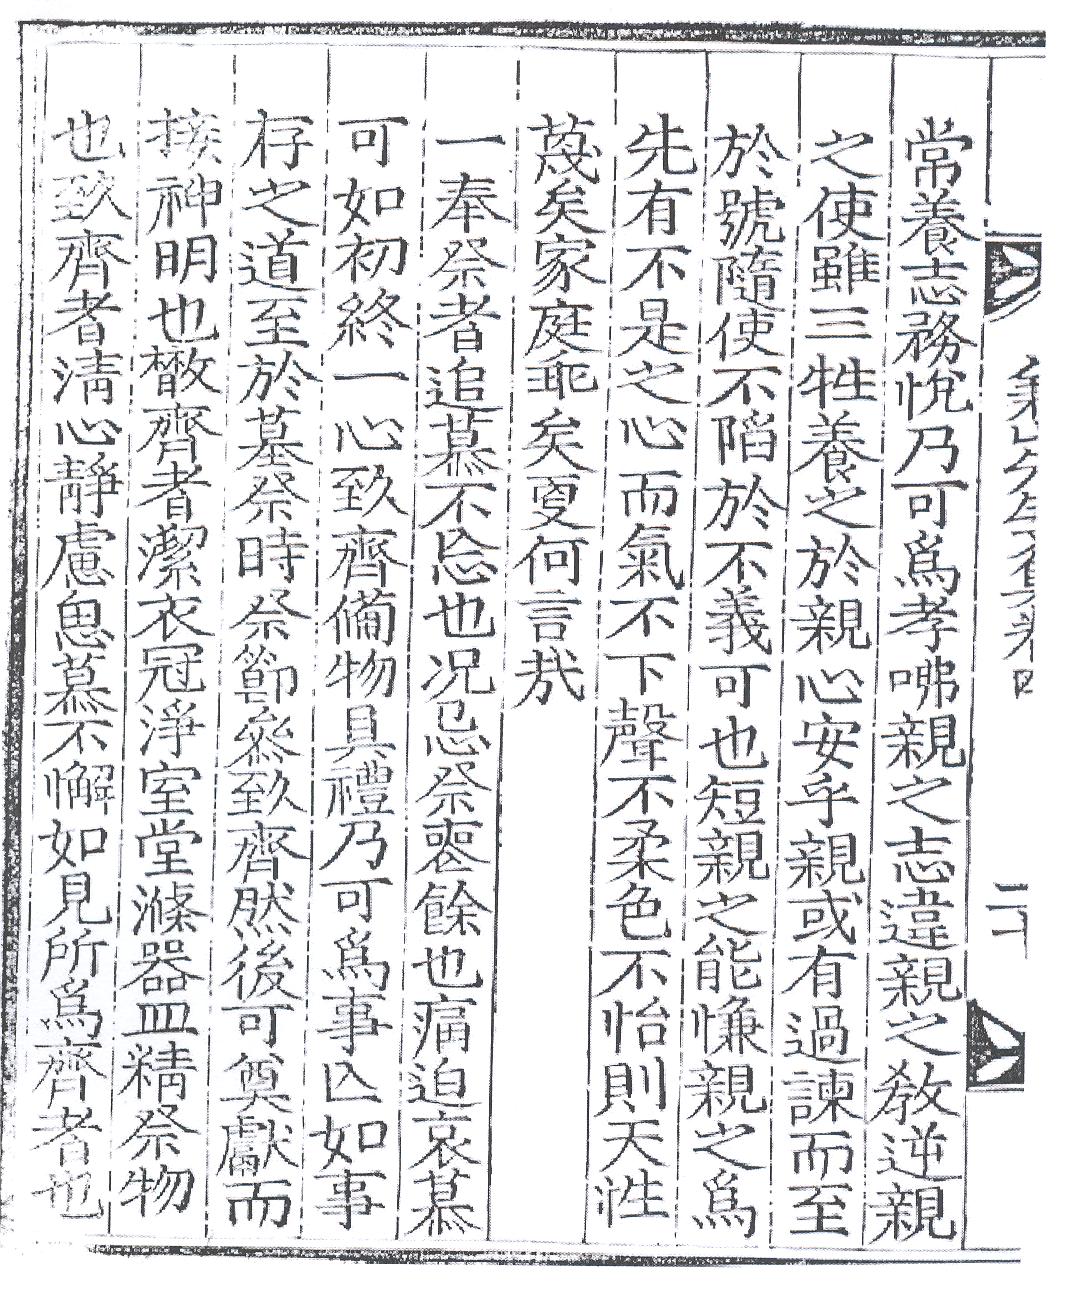 常養志務悅乃可爲孝咈親之志違親之敎逆親
之使雖三牲養之於親心安乎親或有過諫而至
於號隨使不陷於不義可也短親之能慊親之爲
先有不是之心而氣不下聲不柔色不怡則天性
蔑矣家庭乖矣更何言哉
一奉祭者追慕不忘也况忌祭喪餘也痛迫哀慕
可如初終一心致齊備物具禮乃可爲事亡如事
存之道至於墓祭時祭節叅致齊然後可奠獻而
接神明也散齊者潔衣冠淨室堂滌器皿精祭物
也致齊者淸心靜慮思慕不懈如見所爲齊者也
二十